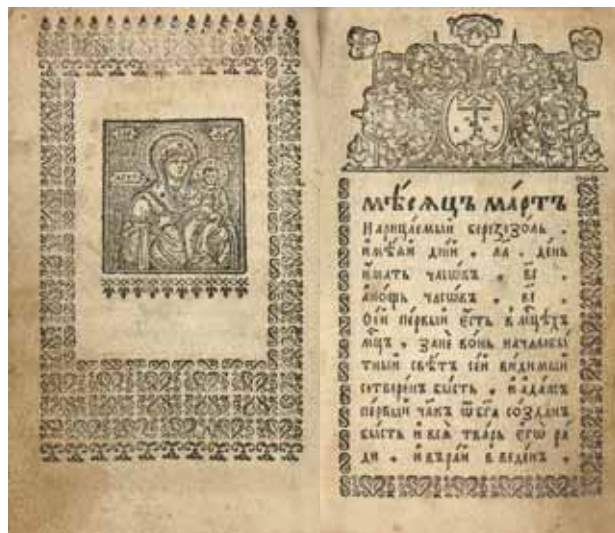 мѣ́сѧцъ ма́ртъ
Нарица́емый березозо́ль .
и҆мѣ́ѧй дні́й . ла҃ . де́нь
и҆мать часѡ́въ . в҃і .
а҆но́щь часѡ́въ . в҃і .
Се́й пе́рвый є҆́сть в мц҃ѣхъ
мц҃ъ . занѐ во́нь началобы́
тный свѣ́тъ се́й ви́димый
сотворе́нъ бы́сть . и҆ а҆да́мъ
пе́рвый чл҃къ ѿ бг҃а со́зданъ
бы́сть и҆ всѧ̀ тва́рь є҆гѡ̀ ра́
ди . и҆ в ра́й в веде́нъ .